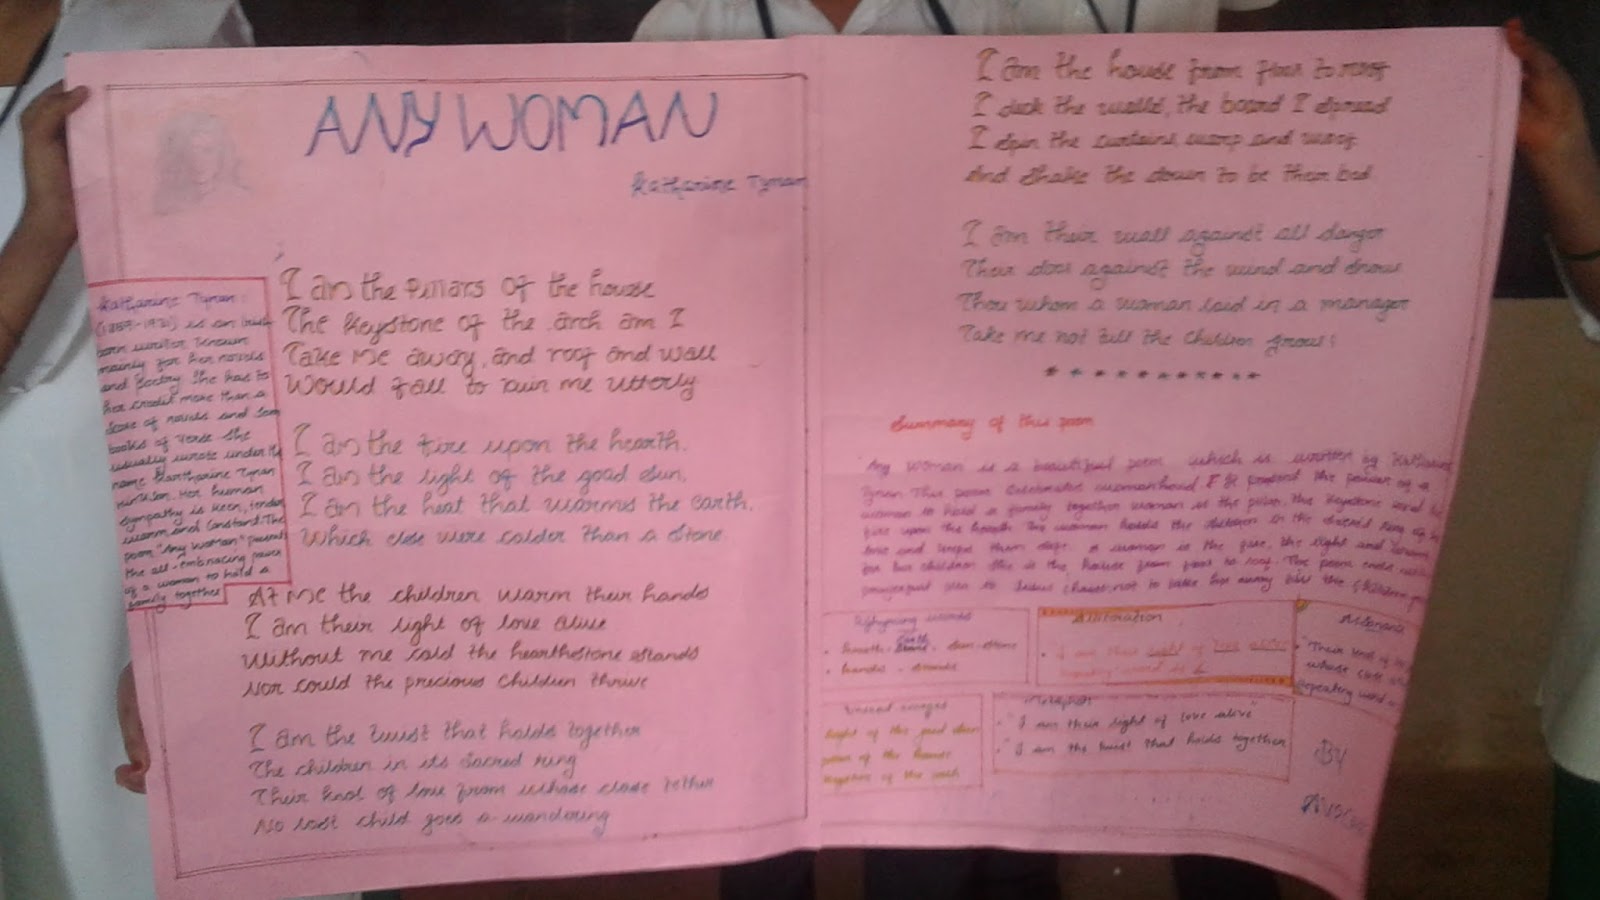 ANY WOMAN
Katharine Tynan
I am the Pillars of the house
The keystone of the arch am I
Take me away, and roof and wall
Would fall to ruin me utterly
I am the fire upon the hearth.
I am the light of the good sun,
I am the heat that warms the earth.
Which else were colder than a stone
At me the children warm their hands
I am their light of love alive
Without me cold the hearthstone stands
Nor could the precious children thrive
I am the twist that holds together
The children in its sacred ring
Their knot of love from whose close tether
No lost child goes a-wandering
Katharine Tynan
is an Irish
born writer known
mainly for her novels
and Poetry. She has to
her credit more than a
of novels and
books of verse. She
usually wrote under the
name Katharine Tynan
Hinkson. Her human
sympathy is keen, tender
warm and constant. The
poem "Any Woman" presents
the all-embracing power
of a woman to hold a
family together
I am the house from floor to roof
I deck the walls, the board I spread
I spin the curtains, warp and woof
And shake the down to be their bed
I am their wall against all danger
Their door against the wind and snow
Thou whom a woman laid in a manager
Take me not till the children grow!
Summary of this poem
Any Woman is a beautiful poem which is written by Katharine
Tynan. This poem celebrates womanhood & present the power of a
woman to hold a family together. woman is the pillar, the keystone and the
fire upon the hearth. The woman holds the children in the sacred ring of
love and keeps them safe. A woman is the fire, the light and
for her children. She is the house from floor to roof. The poem ends with
to take her away till the children
Rhyming words
hearth - earth, sun - stone
hands - stands
Alliteration
"I am their light of love alive"
Repeating word is L
Assonance
"Their knot of
whose close
Repeating word
Visual images
light of the good sun
of the house
of the
Metaphor
"I am their light of love alive"
"I am the twist that holds together
BY